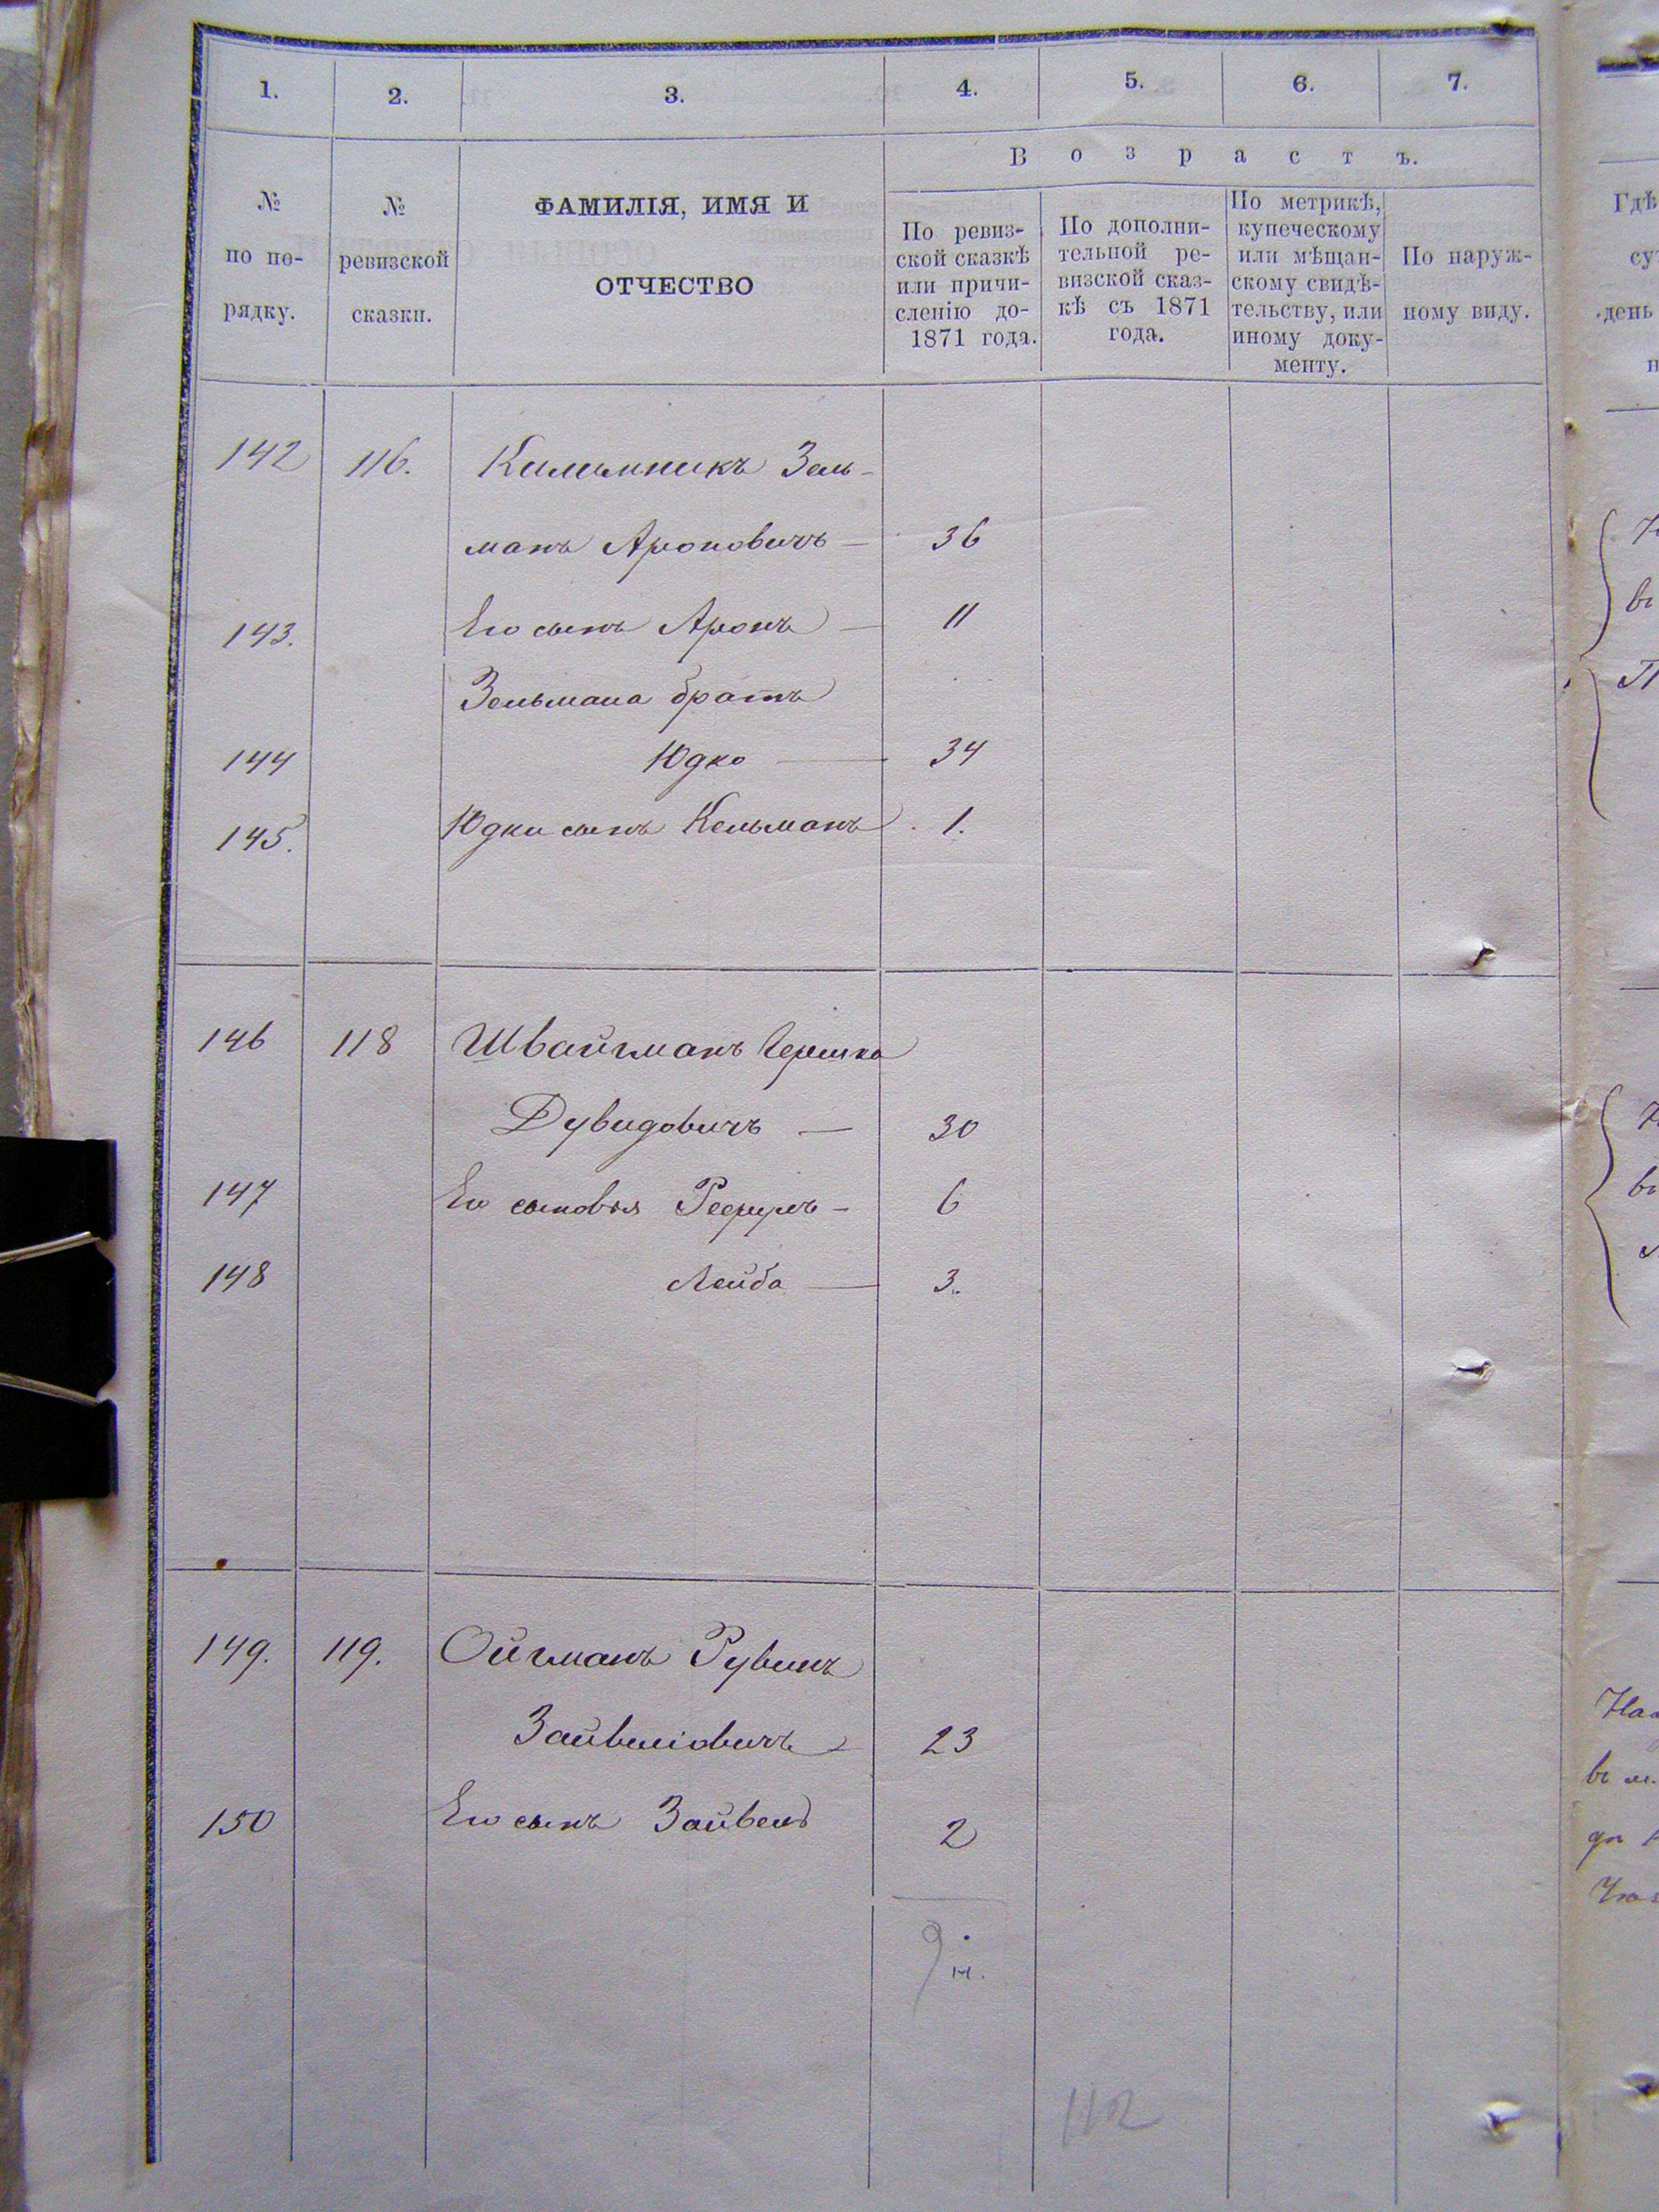 1. 2. 3. 4. 5. 6. 7.
В о з р а с т ъ.
№ по по-рядку.
№ ревизской сказки.
ФАМИЛІЯ, ИМЯ И
ОТЧЕСТВО
По ревиз-
ской сказкѣ
или причи-
сленію до-
1871 года.
По дополни-
тельной ре-
визской сказ-
кѣ съ 1871
года.
По метрикѣ,
купеческому
или мѣщан-
скому свидѣ-
тельству, или
иному доку-
менту.
По наруж-
ному виду.
142 116. Килимникъ Зель-
манъ Ароновичъ — 36
143. Его сынъ Аронъ — 11
Зельмана братъ
144 Юдко — 34
145. Юдки сынъ Кельманъ 1.
146 118 Швайгманъ Гершко
Дувидовичъ — 30
147 Его сыновья — 6
148 Лейба — 3.
149. 119. Ойгманъ Рувинъ
Зайвеліовичъ — 23
150 Его сынъ Зайвель 2
112
Гдѣ
день